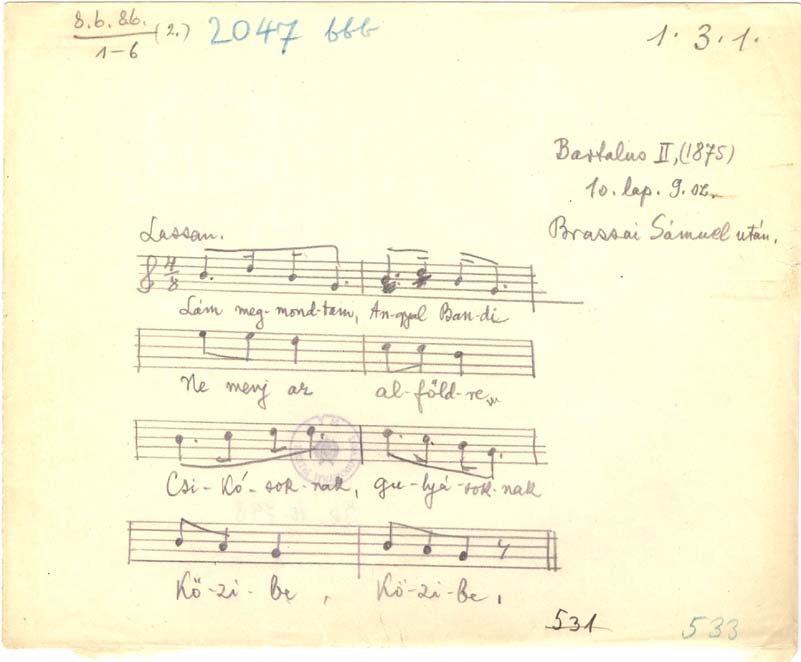 8.b.8b. (2.) 2047 bbb 1. 3. 1.
1-6
Bartalus II, (1875)
10. lap. 9. sz.
Brassai Sámuel után.
Lassan.
4/8
Lám meg-mond-tam, An-gyal Ban-di
Ne menj az al-föld-re
Csi-kó-sok-nak, gu-lyá-sok-nak
Kö-zi-be, Kö-zi-be,
531 533